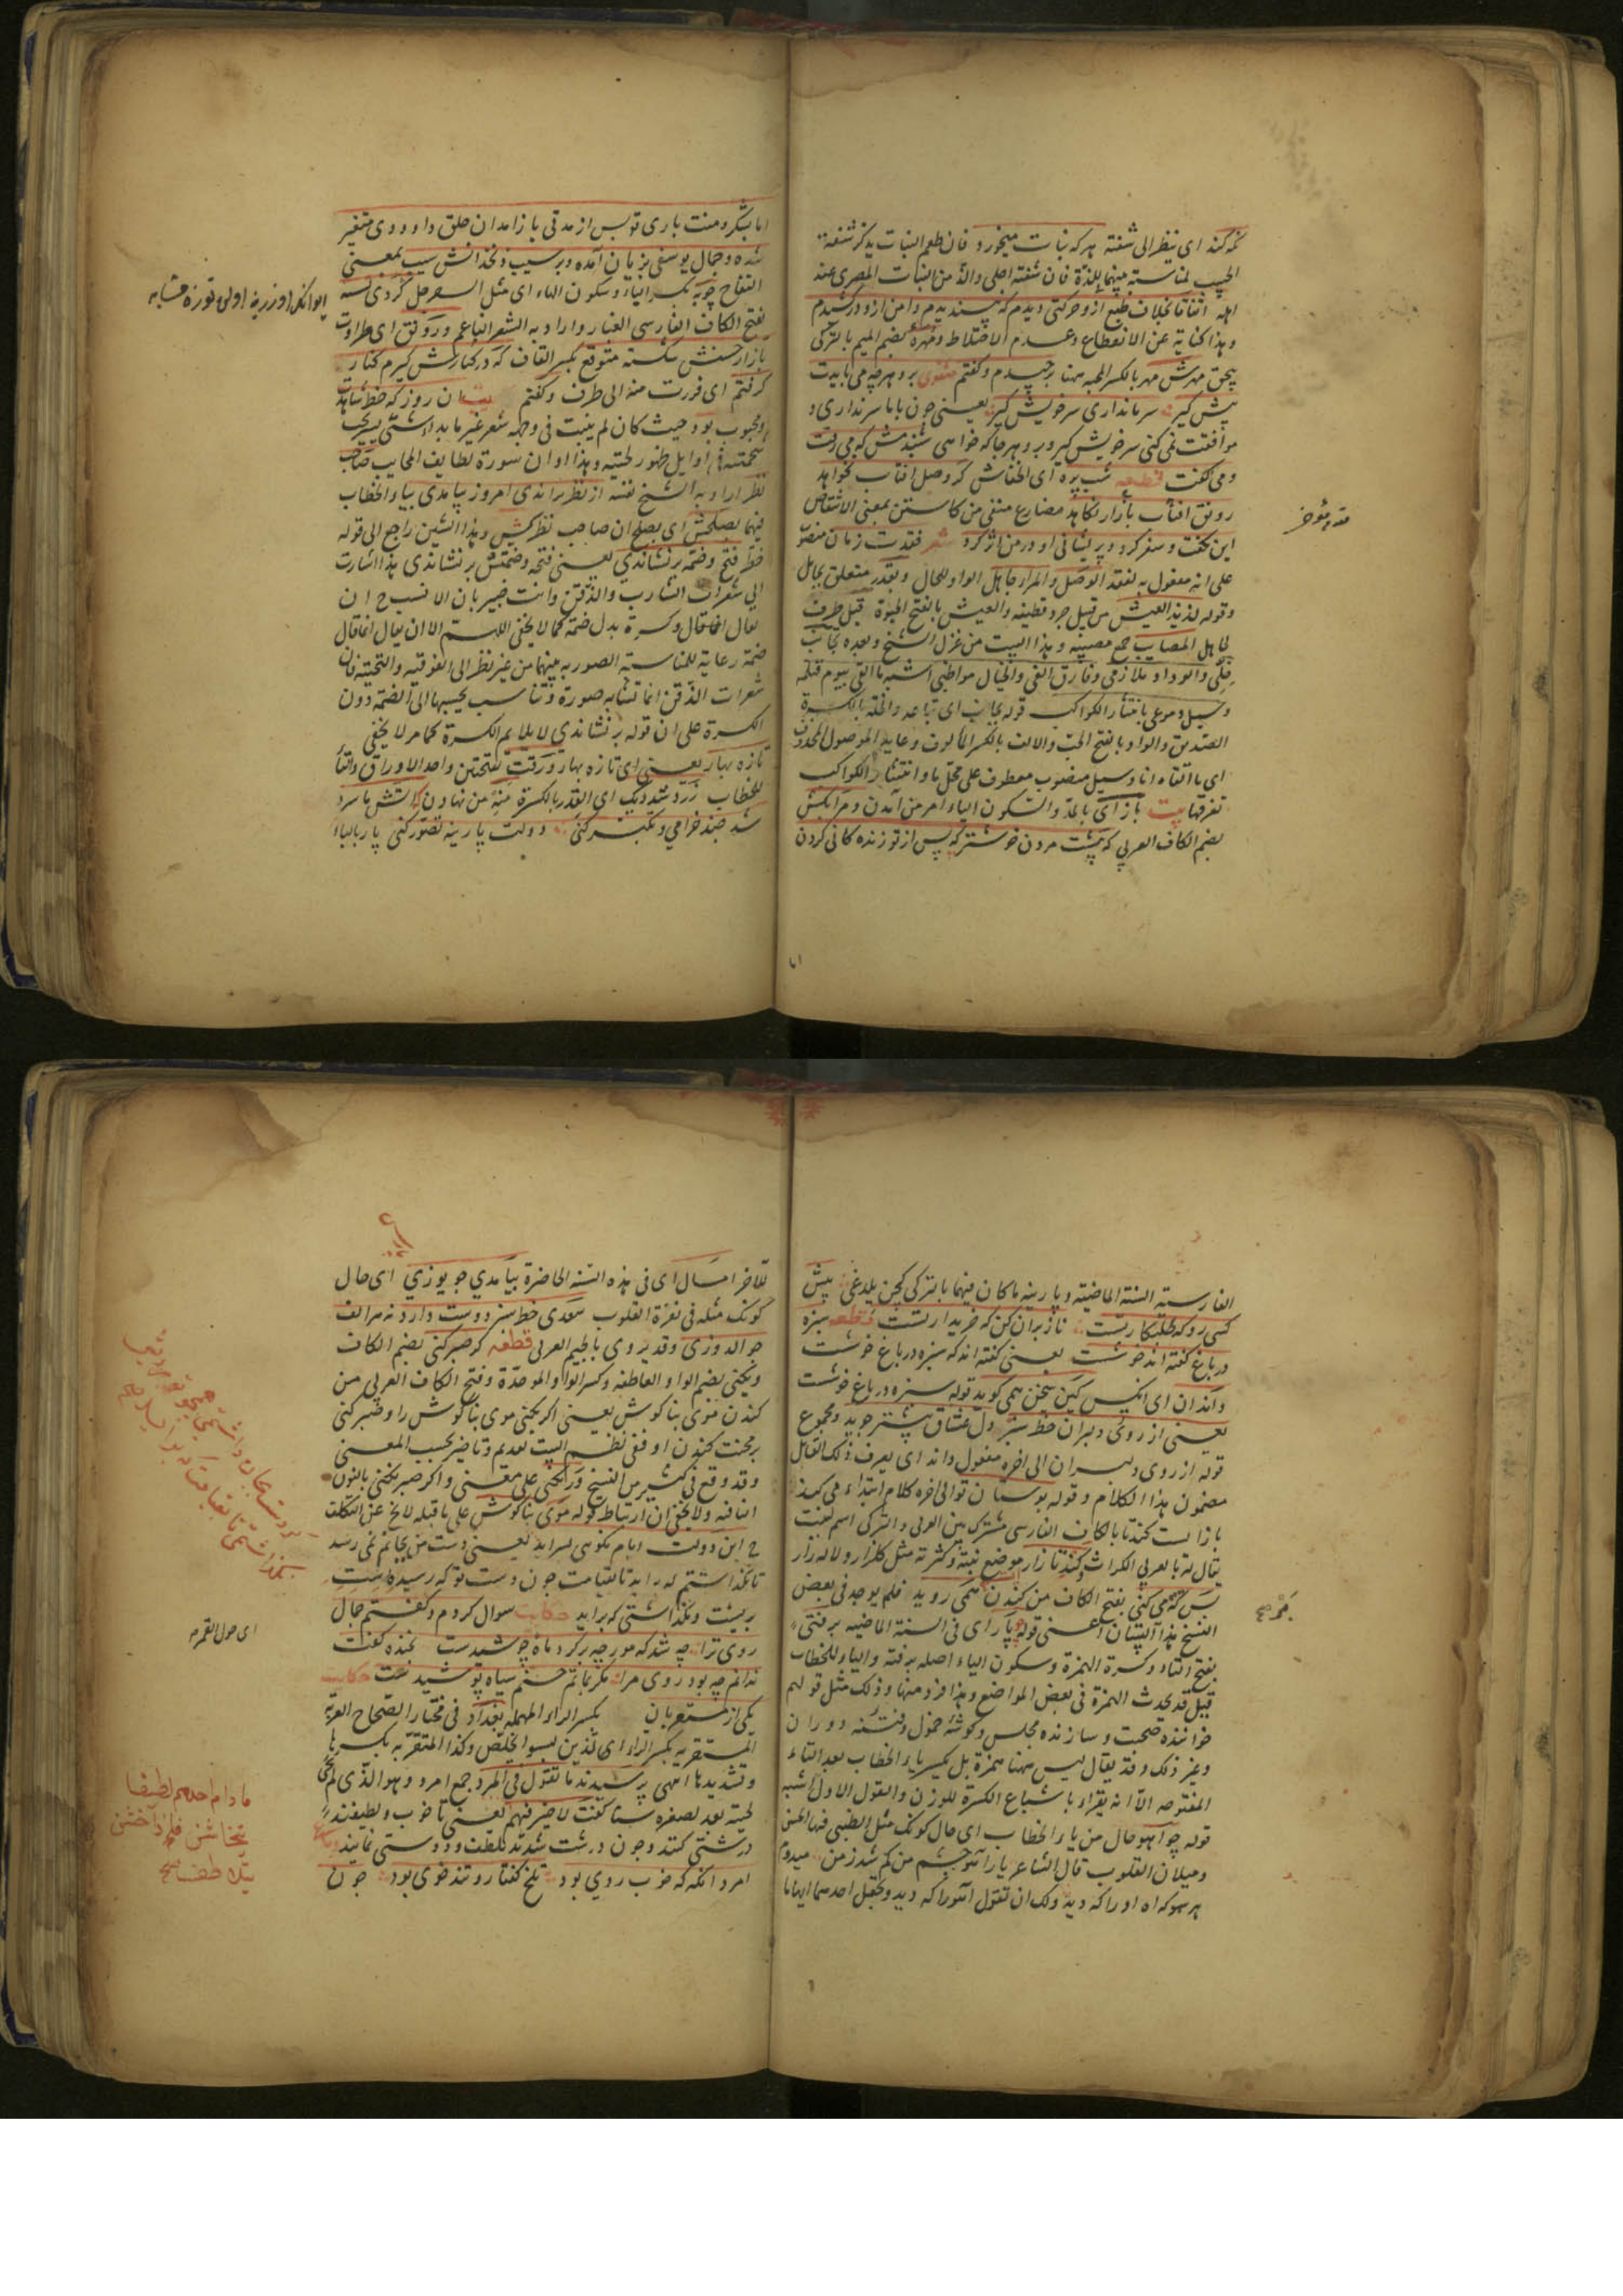 نکه کند ای ینظر الی شفته هر که نبات میخورد فان طعم النبات یذکر شفة
الحبیب لمناسبة بینهما باللذة فان شفته احلی والذ من النبات المصری عند
اهله اتفاقا بخلاف طبع از وحرکتی دیدم که پسندیدم دامن ازو درکشیدم
وهذا کنایة عن الانقطاع وعدم الاختلاط ومهره بضم المیم بالترکی
بنجق مهرش مهر بالکسر المحبه هنا برچیدم وگفتم مثنوی برو هرچه می بایدت
پیش گیر سر مانداری سر خویش گیر یعنی چون باما سر نداری و
موافقت نمی کنی سر خویش گیر وبرو هرجا که خواهی شنیدمش که می رفت
ومی گفت قطعه شب پره ای الخفاش گر وصل افتاب نخواهد
رونق افتاب بازار نکاهد مضارع منفی من کاستن بمعنی الانتقاص
این بگفت وسفر کرد وپریشانی او در من اثر کرد شعر فقدت زمان منصوب
علی انه مفعول به لفقد الوصل والمرء جاهل الواو للحال وبقدر متعلق بجاهل
وقوله لذیذ العیش من قبیل جرد قطیفه والعیش بالفتح الحیوة قبل ظرف
لجاهل المصایب جمع مصیبه وهذا البیت من غزل الشیخ وبعده بجانب
خلی والوداد ملازمی وفارق الفی والخیال مواظبی اشبه ما القی بیوم قیامه
وسیل دموعی بانتثار الکواکب قوله بجانب ای تباعد والخلة بالکسرة
الصدیق والوداد بالفتح الحب والالف بالکسر المألوف وعاید الموصول المحذوف
ای ما القاه انا وسیل منصوب معطوف علی محل ما وانتثار الکواکب
تفرقها بیت باز آی بالمد والسکون الیاء امر من آمدن ومرا بکش
بضم الکاف العربی که پیشت مردن خوشتر که پس از تو زنده کانی کردن
مقدم مؤخر
اما بشکر ومنت باری توبس از مدتی باز آمدان حلق داودی متغیر
شده وجمال یوسفی بزیان آمده وبر سیب زنخدانش سیب بمعنی
التفاح چو به بکسر الباء وسکون الهاء ای مثل السفرجل گردی نشسته
بفتح الکاف الفارسی الغبار واراد به الشعر الناعم ورونق ای طراوت
بازار حسنش شکسته متوقع بکسر القاف که در کنارش گیرم کنار
گرفتم ای فررت منه الی طرف وگفتم بیت ان روز که خط شاهدت
ومحبوب بود حیث کان لم ینبت فی وجهه شعر غیر ما بداءشتی یستحب
نظر اراد به الشیخ نفسه از نظر براندی امروز بیامدی بیاء الخطاب
فیهما بصلحش ای بصلح ان صاحب نظر کیش وهذا الشین راجع الی قوله
نظر فتح وضمه برنشاندی یعنی فتحه وضمتش بر نشاندی هذا اشارت
الی شعرات الشارب والذقن وانت خبیر بان الانسب ح ان
یقال انما قال وکسرة بدل ضمه کما لا یخفی اللهم الا ان یقال انما قال
ضمة رعایة للمناسبة الصوریه بینهما من غیر نظر الی الفوقیة والتحتیة فان
شعرات الذقن انما تشابه صورة وتناسب بحسبها الی الضمه دون
الکسرة علی ان قوله بر نشاندی لا یلایم الکسرة کما مر لا یخفی
تازه بهار یعنی ای تازه بهار ورقت بفتحتین واحد الاوراق والتا
للخطاب زرد شد دیک ای القدر بالکسرة منه من نهادن کآتش ما سرد
شد چند خرامی وتکبر کنی دولت پارینه تصور کنی پار بالباء
الفارسیة السنة الماضیة وپارینه ما کان فیها بالترکی کچن یلدغی پیش
کسی رو که طلبکار تست ناز بران کن که خریدار تست قطعه سبزه
در باغ گفته اند خوشست یعنی گفته اند که سبزه در باغ خوشست
داند ان ای انکس کین سخن همی گوید قوله سبزه در باغ خوشست
یعنی از روی دلبران خط سبز دل عشاق بیشتر جوید ومجموع
قوله از روی دلبران الی اخره مفعول داند ای یعرف ذلک القایل
مضمون هذا الکلام وقوله بوستان تو الی اخره کلام ابتداء می کند
باز الست کندنا بالکاف الفارسی مشترک بین العربی والترکی اسم لنبت
یقال له بالعربی الکراث وکندنازار موضع نبته وکثرته مثل گلزار ولاله زار
بس که می کنی بفتح الکاف من کندن همی روید فلم یوجد فی بعض
النسخ هذا البیتان اعنی قوله پار ای فی السنة الماضیه برفتی
بفتح التاء وکسرة الهمزة وسکون الیاء اصله برفته والیاء للخطاب
قیل قد یحدث الهمزة فی بعض المواضع وهذا فرد منها وذلک مثل قولهم
خواننده صحبت وسازنده مجلس وکوشه خمول وفتنه دوران
وغیر ذلک وقد یقال لیس ههنا همزة بل بکسر یاء الخطاب بعد التاء
المفتوحه الا انه یقراء باشباع الکسرة للوزن والقول الاول اشبه
قوله چو آهو حال من یاء الخطاب ای حال کونک مثل الظبی فی الحسن
ومیلان القلوب قال الشاعر یار آهو چشم من گم شد ز من میدوم
هر سو که اه او را که دید ولک ان تقول آهو را که دید وتجعل احدهما ایهاما
للآخر امسال ای فی هذه السنه الحاضرة بیامدی چو یوزی ای حال
کونک مثله فی نفرة القلوب سعدی خط سبز دوست دارد نه هر الف
جوالدوزی وقد یروی بالجیم العربی قطعه گر صبر کنی بضم الکاف
ونکنی بضم الواو العاطفه وکسر الواو الموحدة وفتح الکاف العربی من
کندن موی بناکوش یعنی اگر بکنی موی بناکوش را وصبر کنی
بر محنت کندن اوففی نظم البیت تقدیم وتاخیر بحسب المعنی
وقد وقع فی کثیر من النسخ ور نکنی علی معنی واگر صبر نکنی بالنون
النافیه ولا یخفی ان ارتباط قوله موی بناکوش علی ما قبله لا یخ عن التکلف
ح این دولت ایام نکویی بسراید یعنی دست من بجانم نمی رسد
تا نگذاشتم که براید تا بقیامت چون دست تو که رسیده است
بریشت ونگذاشتی که براید حکایت سوال کردم وگفتم جمال
روی ترا چه شد که مورچه بر گرد ماه جوشیدست بخنده گفت
ندانم چه بود روی مرا مگر بماتم حسنم سیاه پوشیدست حکایت
یکی از مستعربان بکسر الراء المهمله بغداد فی مختار الصحاح العرب
المستعربه بکسر الراء ای الذین لیسوا بخلص وکذا المتعربه بکسرها
وتشدیدها انتهی پرسیدند ما تقول فی المرد جمع امرد وهو الذی لم
لحیته بعد لصغره سنا گفت لا خیر فیهم یعنی تا خوب ولطیفند
درشتی کنند وچون درشت شدند تلطف ودوستی نمایند
امرد انکه که خوب روی بود تلخ گفتار وتند خوی بود چون
ای حول القمر
ما دام احدهم لطیفا
یتخاشن فاذا خشن
یتلاطف صح